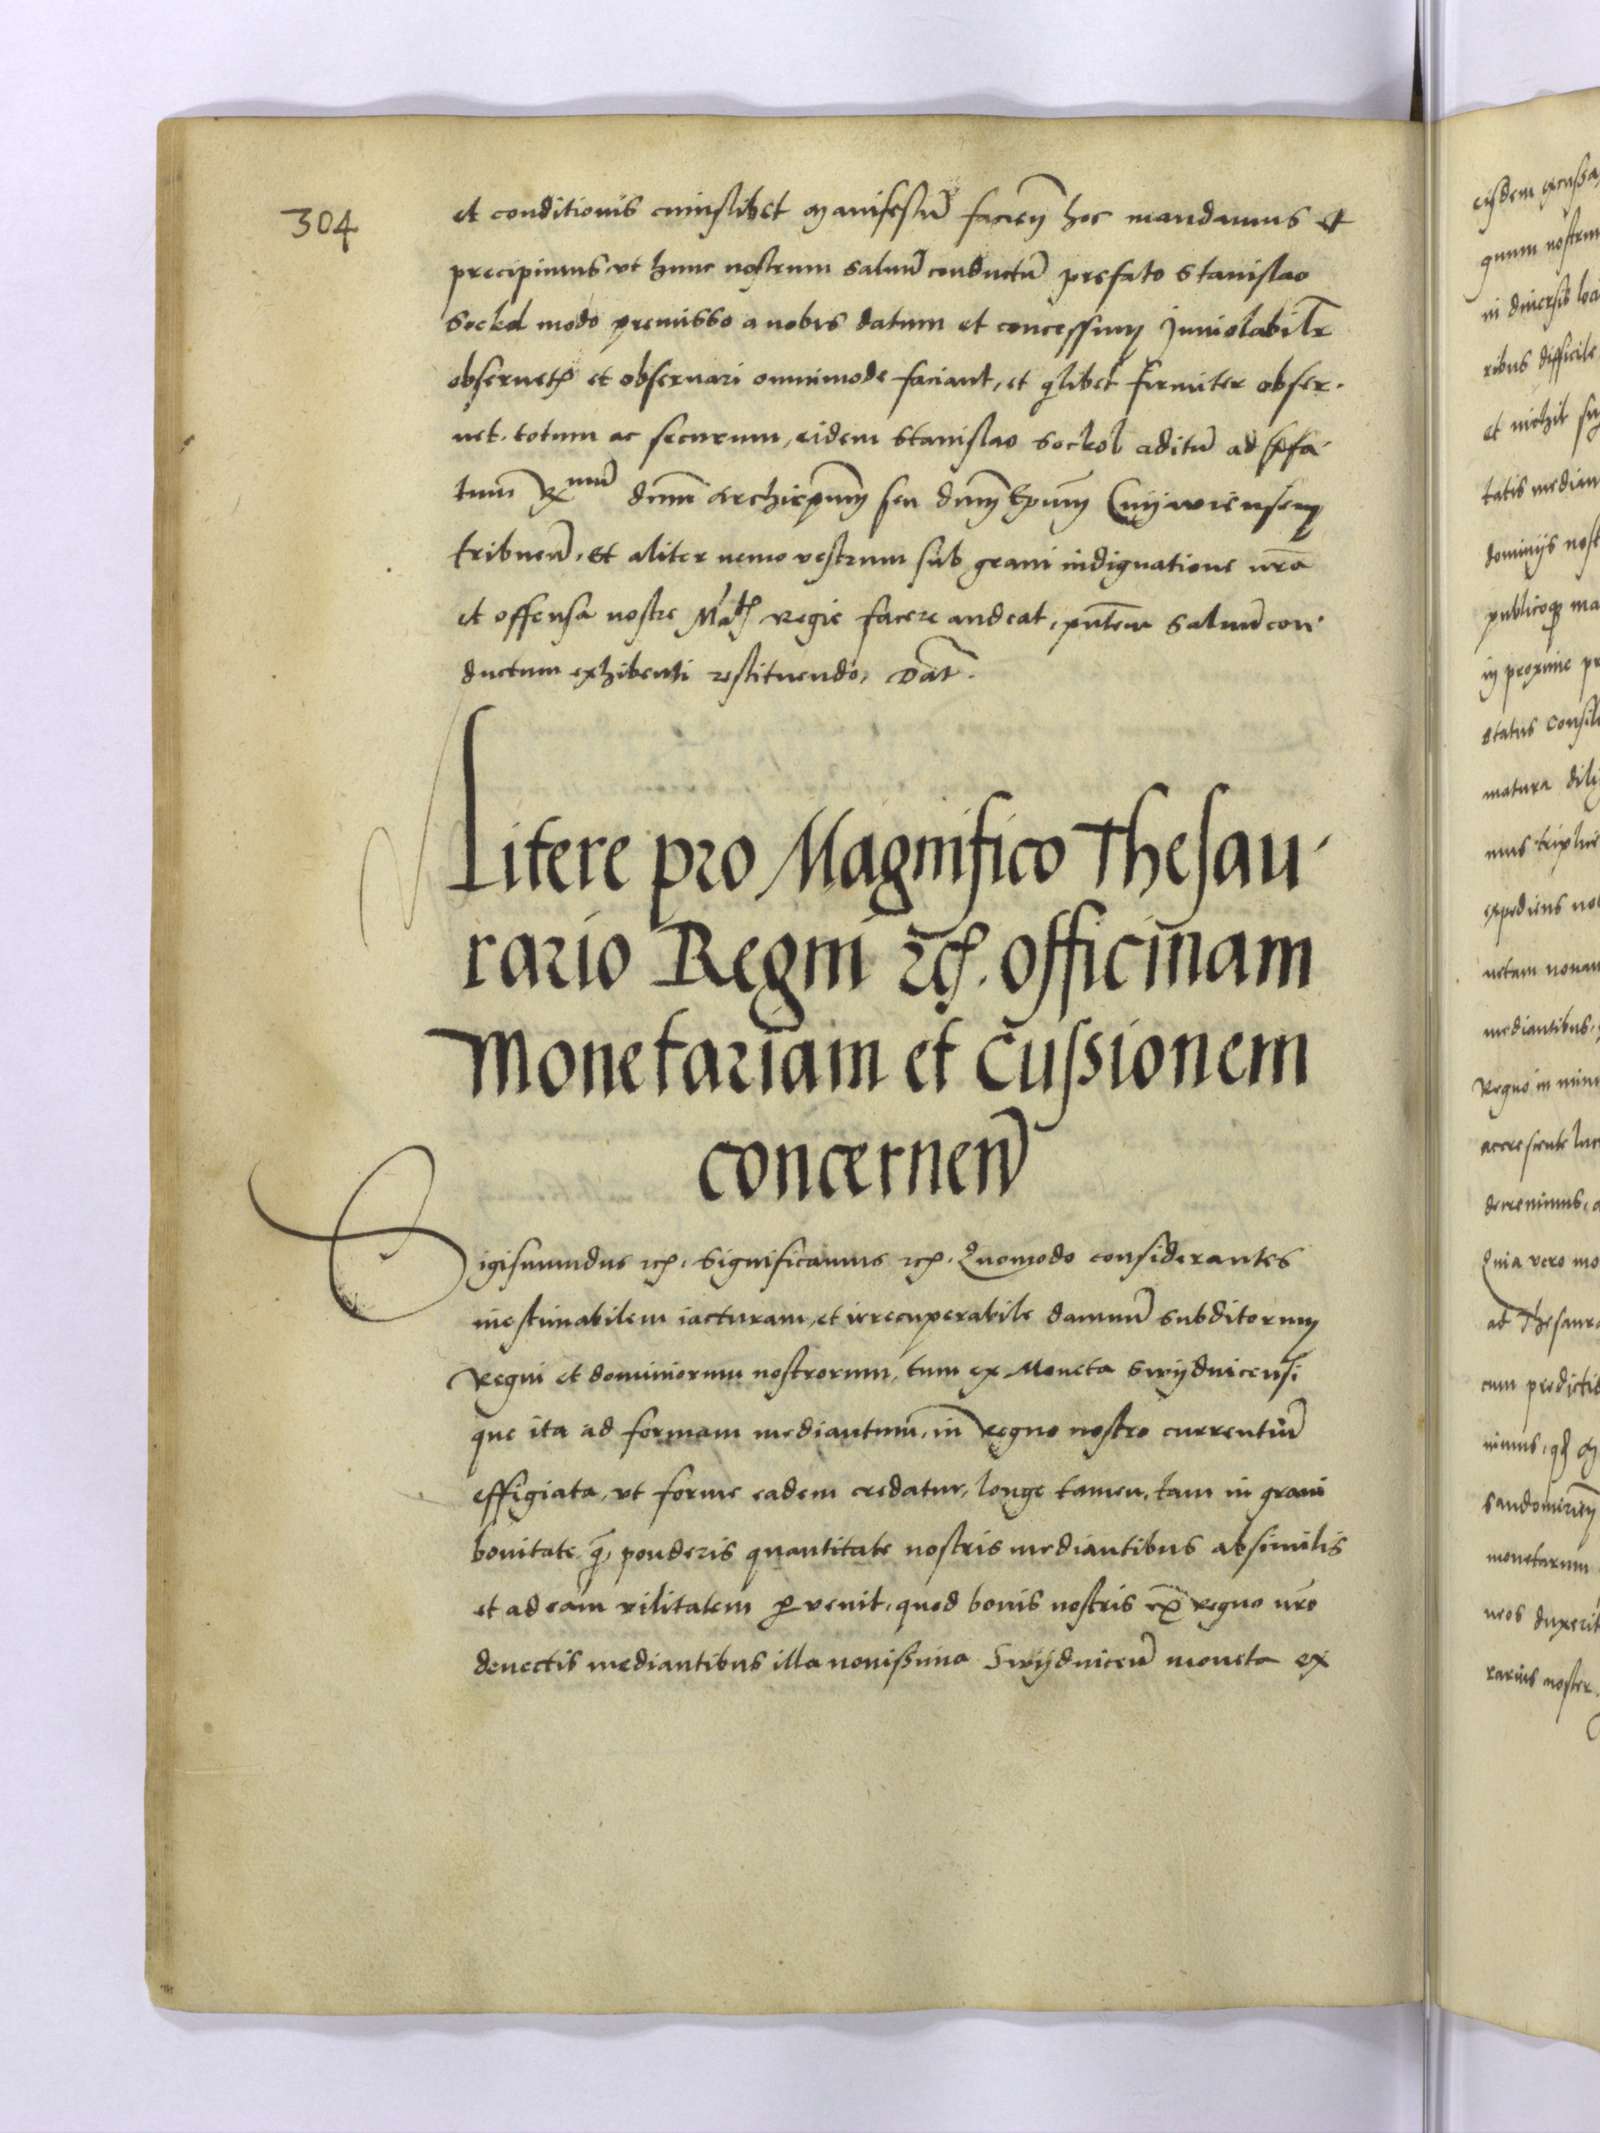 304
et conditionis cuiuslibet manifestū facien̄ hoc mandamus et
precipimus, vt hunc nostrum saluū conductū prefato Stanislao
Sockol modo premisso a nobis datum et concessum Inuiolabilr̄
obseruetꝭ et obseruari omnimode faciant, et q̄libet firmiter obser-
uet. totum ac securum, eidem Stanislao Sockol aditū ad p̄fa-
tum R^mū dnm̄ Archiepūm seu dnm̄ Epum̄ Cuijawiensem
tribuen̄. Et aliter nemo vestrum sub graui indignatione nr̄a
et offensa nostre Mātꝭ Regie facere audeat, pn̄tem saluū con-
ductum exhibenti restituendo, Dat̄.
Litere pro Magnifico Thesau-
rario Regni ꝛcꝭ. officinam
Monetariam et Cussionem
concernen̄
Sigismundus ꝛcꝭ. Significamus ꝛcꝭ. Quomodo considerantes
inestimabilem iacturam, et irrecuperabile damnū subditorum
Regni et dominiorum nostrorum, tum ex Moneta Swijdnicensi
que ita ad formam mediantum, in Regno nostro currentiū
effigiata, vt forme eadem credatur, longe tamen, tam in grani
bonitate, q̄, ponderis quantitate nostris mediantibus absimilis
et ad eam vilitatem ꝑvenit, quod bonis nostris ex Regno nr̄o
deuectis mediantibus illa nouissima Swijdnicen̄ moneta ex
eijsdem
quum nostrum
in diuersis
ribus difficile
et nichil
tatis
dominijs
publicoqꝫ
in proxime
status
matura
expediens
mediantibus
Regno in
accrescente
decreuimus
Quia vero
ad
cum predictis
monetarum
neos duxerit
rarius noster